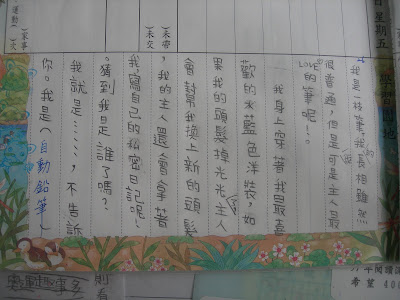 日星期五
我是一枝筆，我的長相雖然
很普通，但是我可是主人最
LOVE的筆呢！
我身上穿著我最喜
歡的水藍色洋裝，如
果我的頭髮掉光光，主人
會幫我換上新的頭髮
，我的主人還會拿著
我寫自己的私密日記呢！
。猜到我是誰了嗎？
我就是……，不告訴
你。我是（自動鉛筆）
未帶
未交
家事
運動
奧運趣事多
則看
希望 40